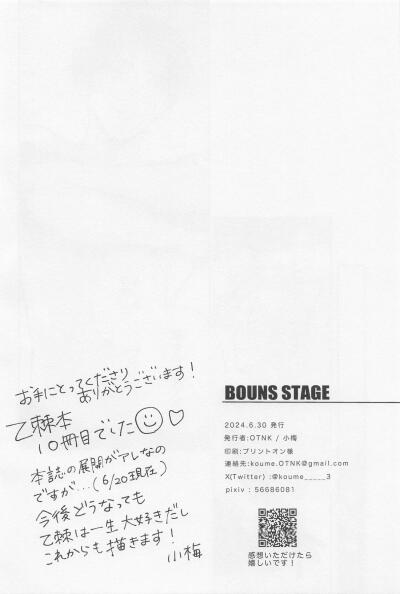 お手にとってくださり
ありがとうございます!
乙棘本
10冊目でした
本誌の展開がアレなの
ですが…(6/20現在)
今後どうなっても
乙棘は一生大好きだし
これからも描きます!
小梅
BOUNS STAGE
2024.6.30 発行
発行者:OTNK / 小梅
印刷:プリントオン様
連絡先:koume.OTNK@gmail.com
X(Twitter) :@koume_____3
pixiv : 56686081
感想いただけたら
嬉しいです!